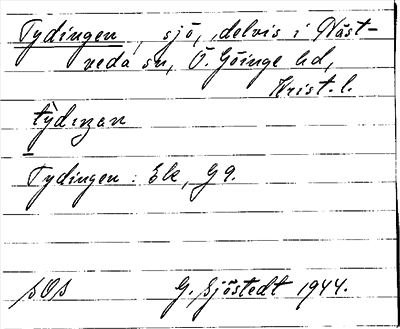 Tydingen, sjö, delvis i Näst-
veda sn, Ö. Göinge hd,
Krist. l.
tỳdıŋan
Tydingen: Ek, G 9.
SOS G. Sjöstedt 1944.